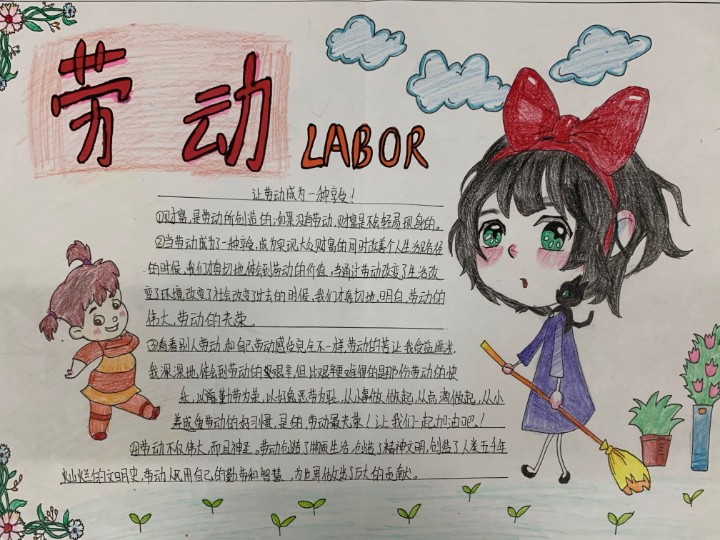 劳动
LABOR
让劳动成为一种享受!
①财富,是劳动所创造的,如果没有劳动,财富是不会轻易现身的。
②当劳动成为了一种享受,成为实现大众财富的同时改善个人生活路径
的时候,我们才真切地体会到劳动的价值,当通过劳动改变了生活改
变了环境改变了社会改变了过去的时候,我们才真切地明白,劳动的
伟大,劳动的光荣。
③看看别人劳动和自己劳动感受完全不一样,劳动的苦让我受益匪浅,
我深深地,体会到劳动的艰辛,但比艰辛更难得的是那份劳动的快
永,以辛勤劳为荣,以好逸恶劳为耻,从小事做,做起,从点滴做起,从小
养成爱劳动的好习惯,是的,劳动最光荣!让我们一起加油吧!
④劳动不仅伟大,而且神圣,劳动创造了物质生活,创造了精神文明,创造了人类五千年
灿烂的文明史,劳动人民用自己的勤劳和智慧,为世界做出了巨大的贡献。